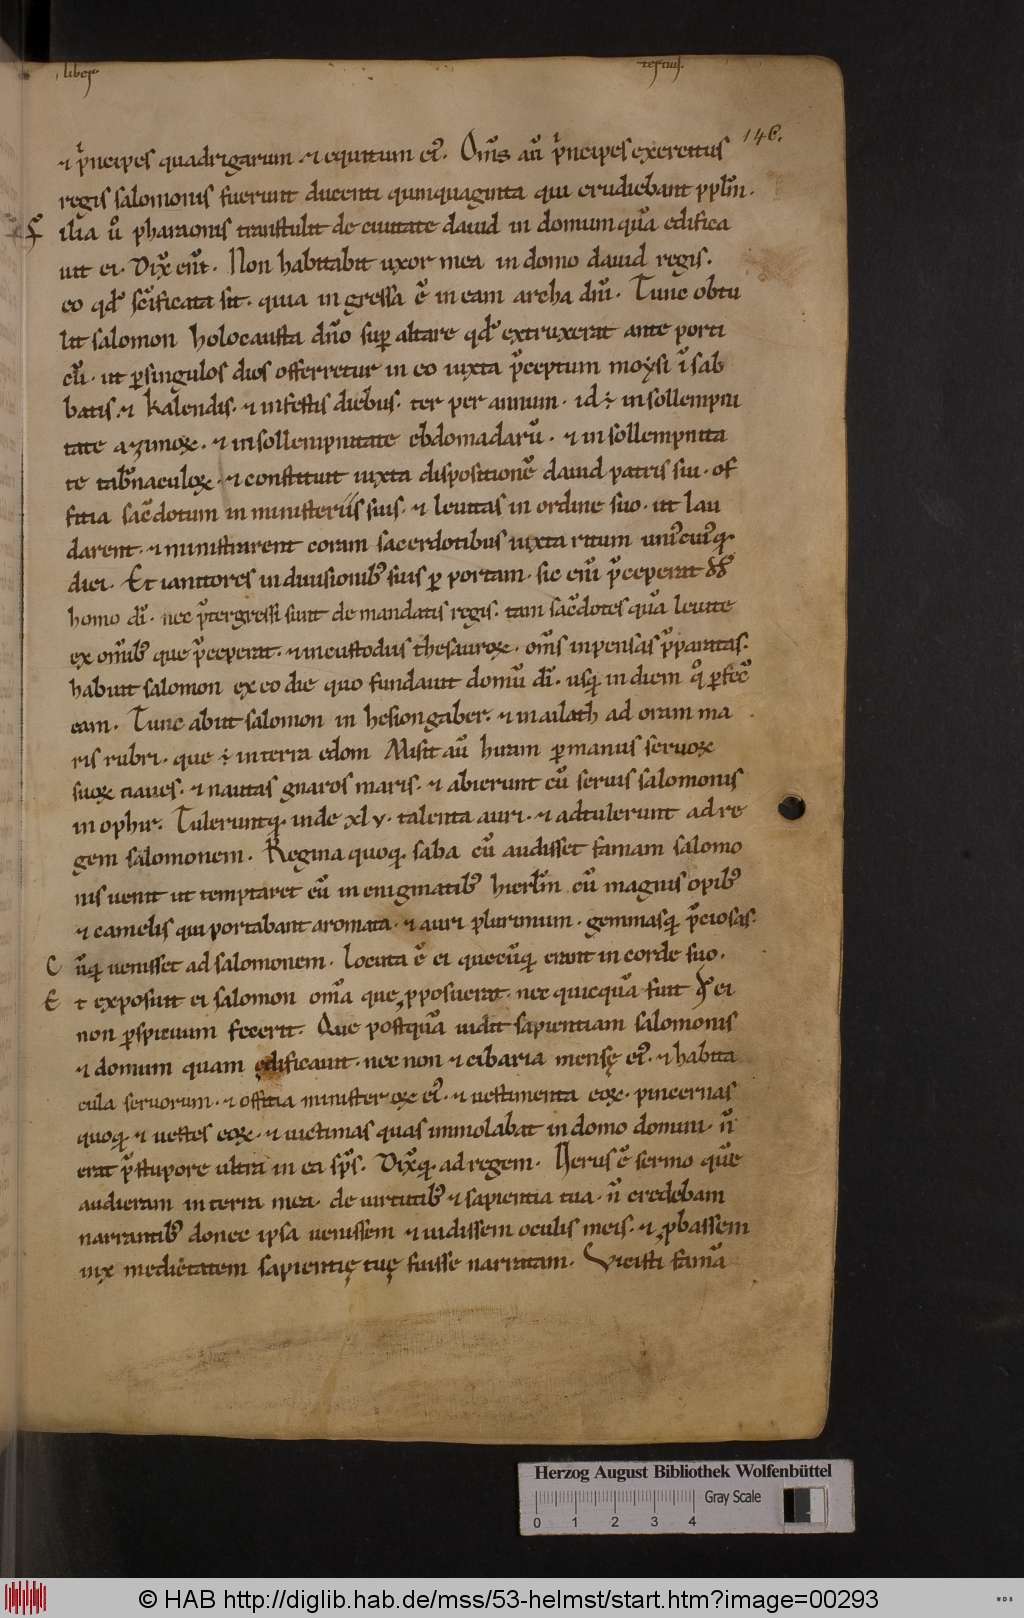 liber tertius.
146.
⁊ p̃ncipes quadrigarum ⁊ equitum ei᷒. Om̃s aũ p̃ncipes exercitus
regis salomonis fuerunt ducenti quinquaginta qui erudiebant pplm̃.
Filia ũ pharaonis transtulit de ciuitate dauid in domum quã edifica
uit ei. Dix̃ eni͂. Non habitabit uxor mea in domo dauid regis.
eo qđ sc̃ificata sit. quia in gressa ẽ in eam archa dñi. Tunc obtu
lit salomon holocausta dño sup altare qđ extruxerat ante porti
cũ. ut p singulos dies offerretur in eo iuxta p̃ceptum moẏsi ĩ sab
batis. ⁊ kalendis. ⁊ in festis diebus. ter per annum. id ÷ in sollempni
tate azimoꝝ. ⁊ in sollempnitate ebdomadarũ. ⁊ in sollempnita
te tab̃naculoꝝ. ⁊ constituit iuxta dispositionẽ dauid patris sui. of
fitia sac̃dotum in ministeriis suis. ⁊ leuitas in ordine suo. ut lau
darent. ⁊ ministrarent coram sacerdotibus iuxta ritum uni᷒cui᷒q;
diei. Et ianitores in diuisionib᷒ suis p portam. sic eni͂ p̃ceperat dd̃
homo dĩ. nec p̃tergressi sunt de mandatis regis. tam sac̃dotes quã leuite
ex om̃ib᷒ que p̃ceperat. ⁊ in custodiis thesauroꝝ. om̃s inpensas p̃paratas.
habuit salomon ex eo die quo fundauit domũ dĩ. usq; in diem q̊ pfec̃
eam. Tunc abiit salomon in hesiongaber. ⁊ in ailath ad oram ma
ris rubri. que ÷ in terra edom Misit aũ hiram p manus seruoꝝ
suoꝝ naues. ⁊ nautas gnaros maris. ⁊ abierunt cũ seruis salomonis
in ophir. Tuleruntq; inde xlv. talenta auri. ⁊ adtulerunt ad re
gem salomonem. Regina quoq; saba cũ audisset famam salomo
nis uenit ut temptaret eũ in enigmatib᷒ hierlm̃ cũ magnis opib᷒
⁊ camelis qui portabant aromata. ⁊ auri plurimum. gemmasq; p̃ciosas.
Cũq; uenisset ad salomonem. locuta ẽ ei quecũq; erant in corde suo.
Et exposuit ei salomon om̃a que pposuerat. nec quicquã fuit qđ ei
non pspicuum fecerit. Que postquã uidit sapientiam salomonis
⁊ domum quam edificauit. nec non ⁊ cibaria mensę ei᷒. ⁊ habita
cula seruorum. ⁊ offitia ministroꝝ ei᷒. ⁊ uestimenta eoꝝ. pincernas
quoq; ⁊ uestes eoꝝ. ⁊ uictimas quas immolabat in domo domini. ñ
erat p̃ stupore ultra in ea sp̃s. Dix̃q; ad regem. Verus ẽ sermo quẽ
audieram in terra mea. de uirtutib᷒ ⁊ sapientia tua. ñ credebam
narrantib᷒ donec ipsa uenissem ⁊ uidissem oculis meis. ⁊ pbassem
uix medietatem sapientię tuę fuisse narratam. Vicisti famã
Herzog August Bibliothek Wolfenbüttel
Gray Scale
0 1 2 3 4
© HAB http://diglib.hab.de/mss/53-helmst/start.htm?image=00293